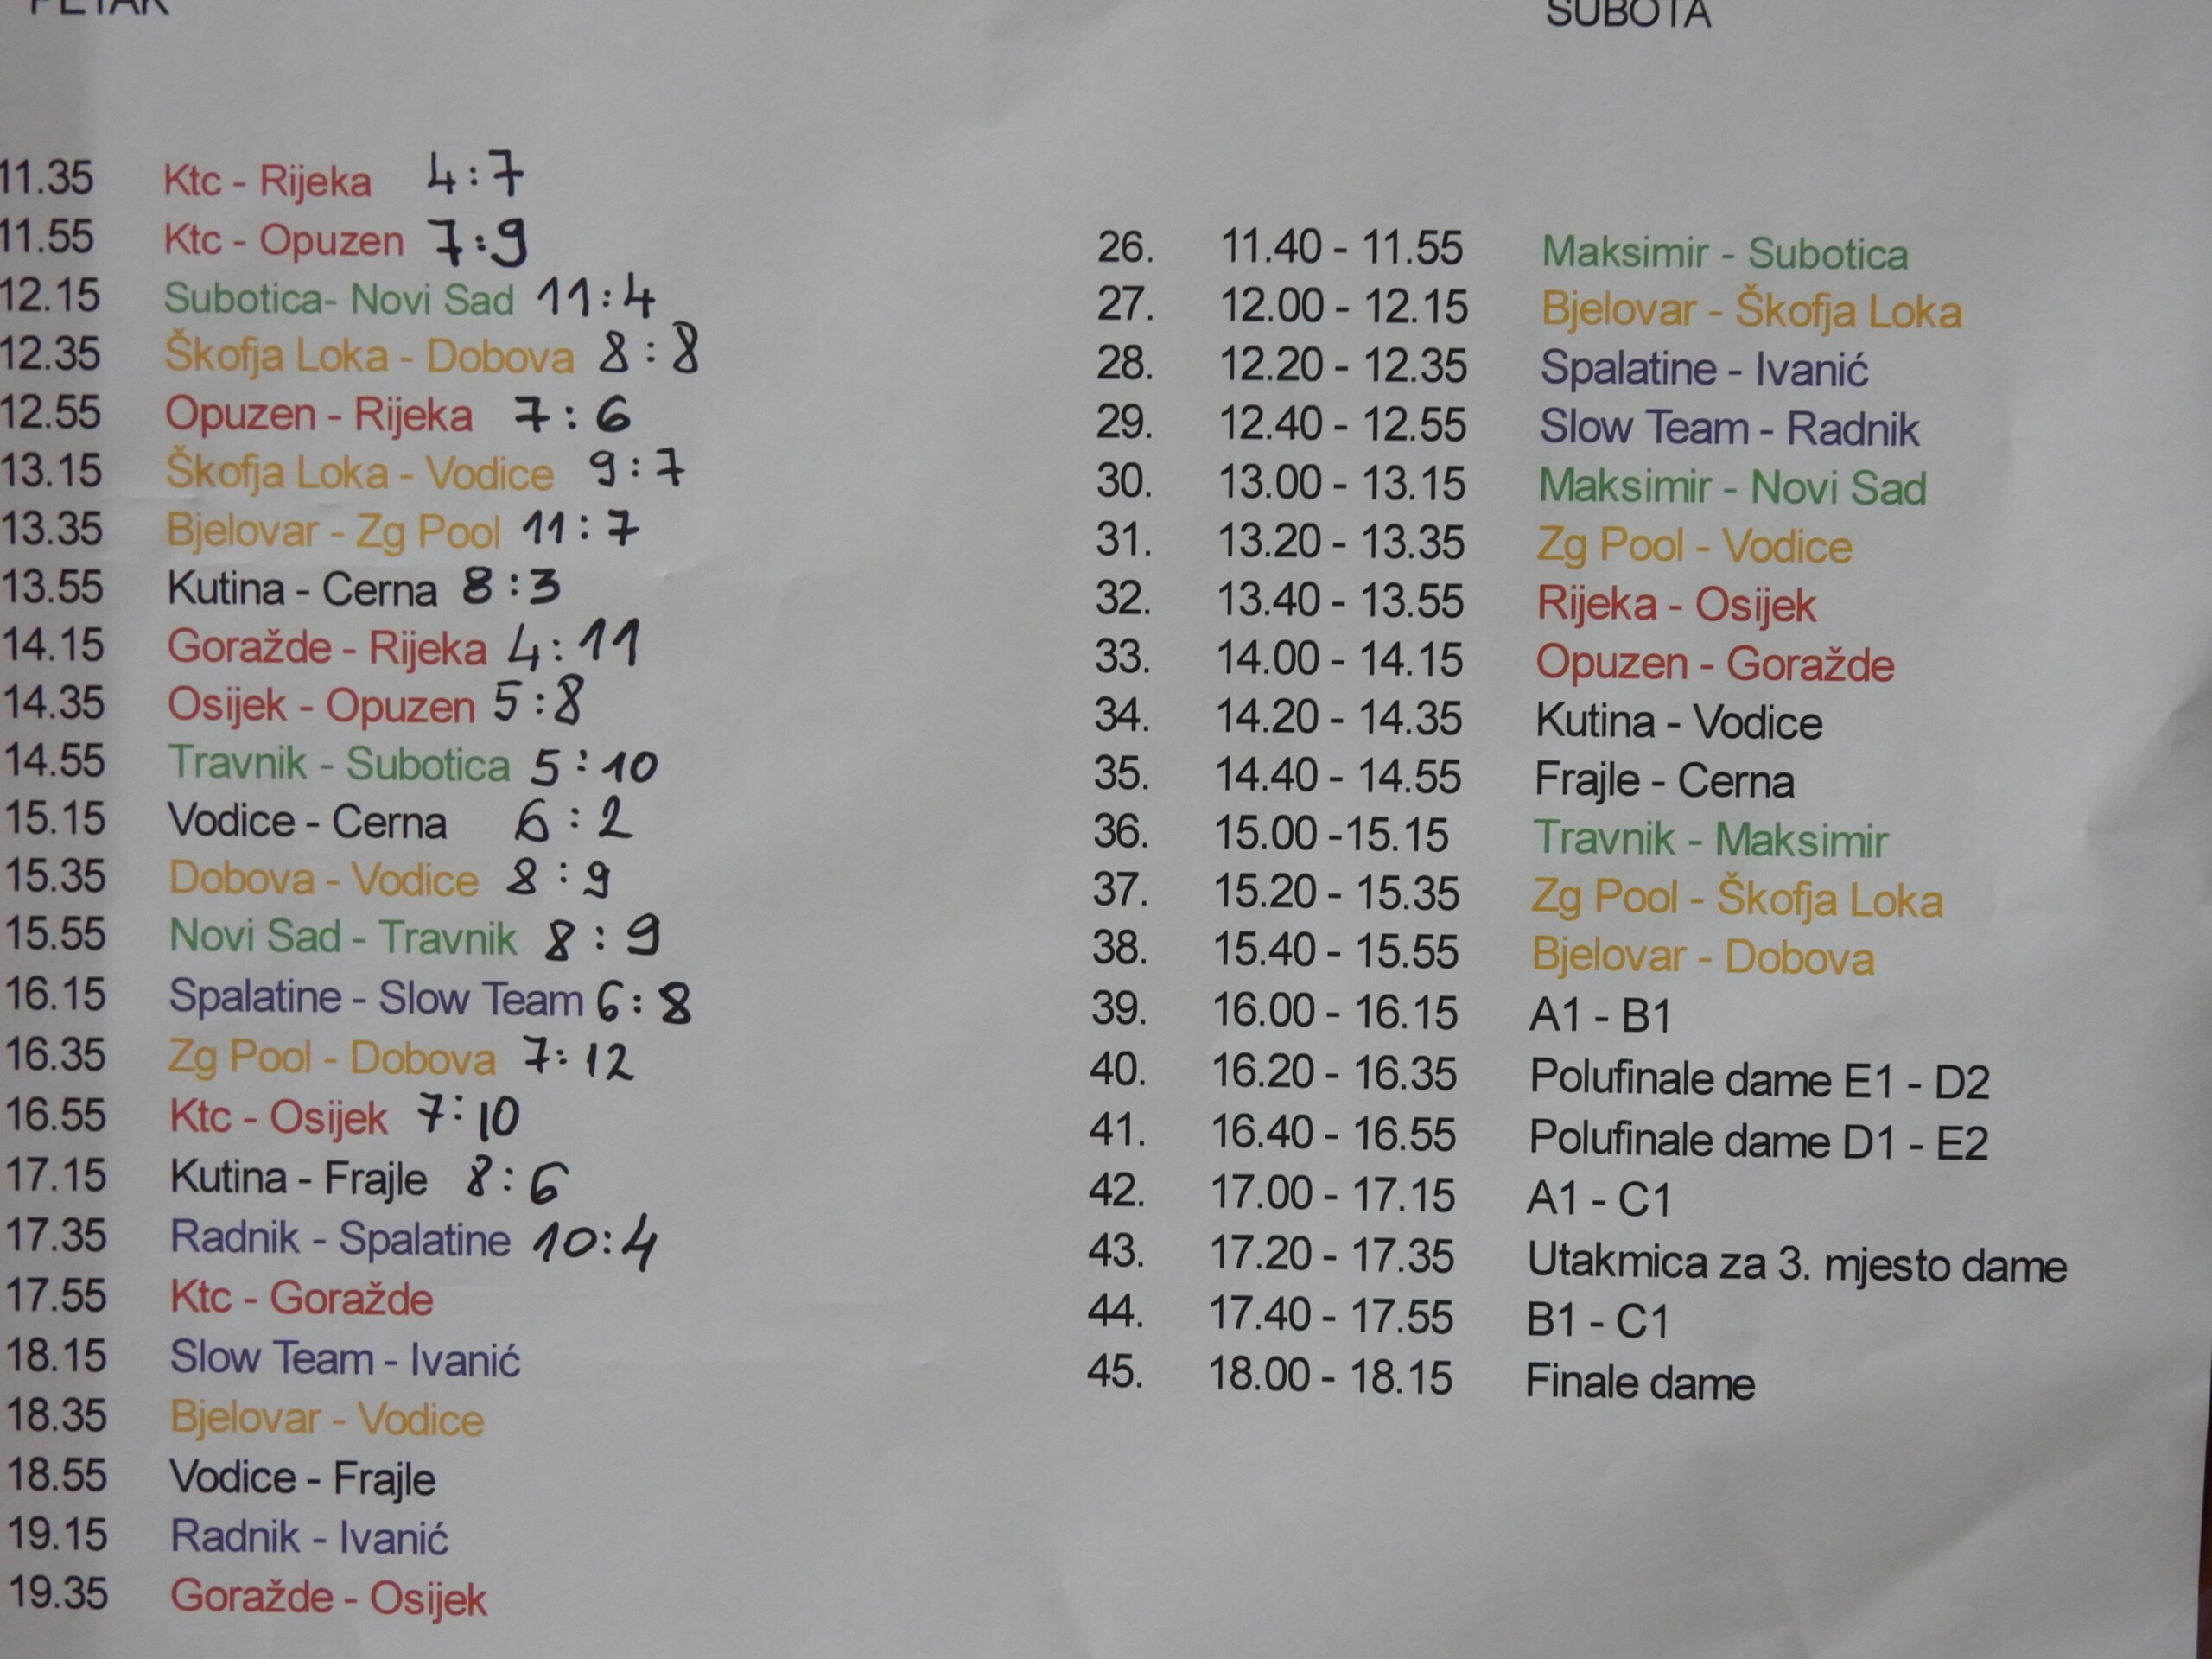 PETAK
11.35 Ktc - Rijeka 4:7
11.55 Ktc - Opuzen 7:9
12.15 Subotica- Novi Sad 11:4
12.35 Škofja Loka - Dobova 8:8
12.55 Opuzen - Rijeka 7:6
13.15 Škofja Loka - Vodice 9:7
13.35 Bjelovar - Zg Pool 11:7
13.55 Kutina - Cerna 8:3
14.15 Goražde - Rijeka 4:11
14.35 Osijek - Opuzen 5:8
14.55 Travnik - Subotica 5:10
15.15 Vodice - Cerna 6:2
15.35 Dobova - Vodice 8:9
15.55 Novi Sad - Travnik 8:9
16.15 Spalatine - Slow Team 6:8
16.35 Zg Pool - Dobova 7:12
16.55 Ktc - Osijek 7:10
17.15 Kutina - Frajle 8:6
17.35 Radnik - Spalatine 10:4
17.55 Ktc - Goražde
18.15 Slow Team - Ivanić
18.35 Bjelovar - Vodice
18.55 Vodice - Frajle
19.15 Radnik - Ivanić
19.35 Goražde - Osijek
SUBOTA
26. 11.40 - 11.55 Maksimir - Subotica
27. 12.00 - 12.15 Bjelovar - Škofja Loka
28. 12.20 - 12.35 Spalatine - Ivanić
29. 12.40 - 12.55 Slow Team - Radnik
30. 13.00 - 13.15 Maksimir - Novi Sad
31. 13.20 - 13.35 Zg Pool - Vodice
32. 13.40 - 13.55 Rijeka - Osijek
33. 14.00 - 14.15 Opuzen - Goražde
34. 14.20 - 14.35 Kutina - Vodice
35. 14.40 - 14.55 Frajle - Cerna
36. 15.00 -15.15 Travnik - Maksimir
37. 15.20 - 15.35 Zg Pool - Škofja Loka
38. 15.40 - 15.55 Bjelovar - Dobova
39. 16.00 - 16.15 A1 - B1
40. 16.20 - 16.35 Polufinale dame E1 - D2
41. 16.40 - 16.55 Polufinale dame D1 - E2
42. 17.00 - 17.15 A1 - C1
43. 17.20 - 17.35 Utakmica za 3. mjesto dame
44. 17.40 - 17.55 B1 - C1
45. 18.00 - 18.15 Finale dame